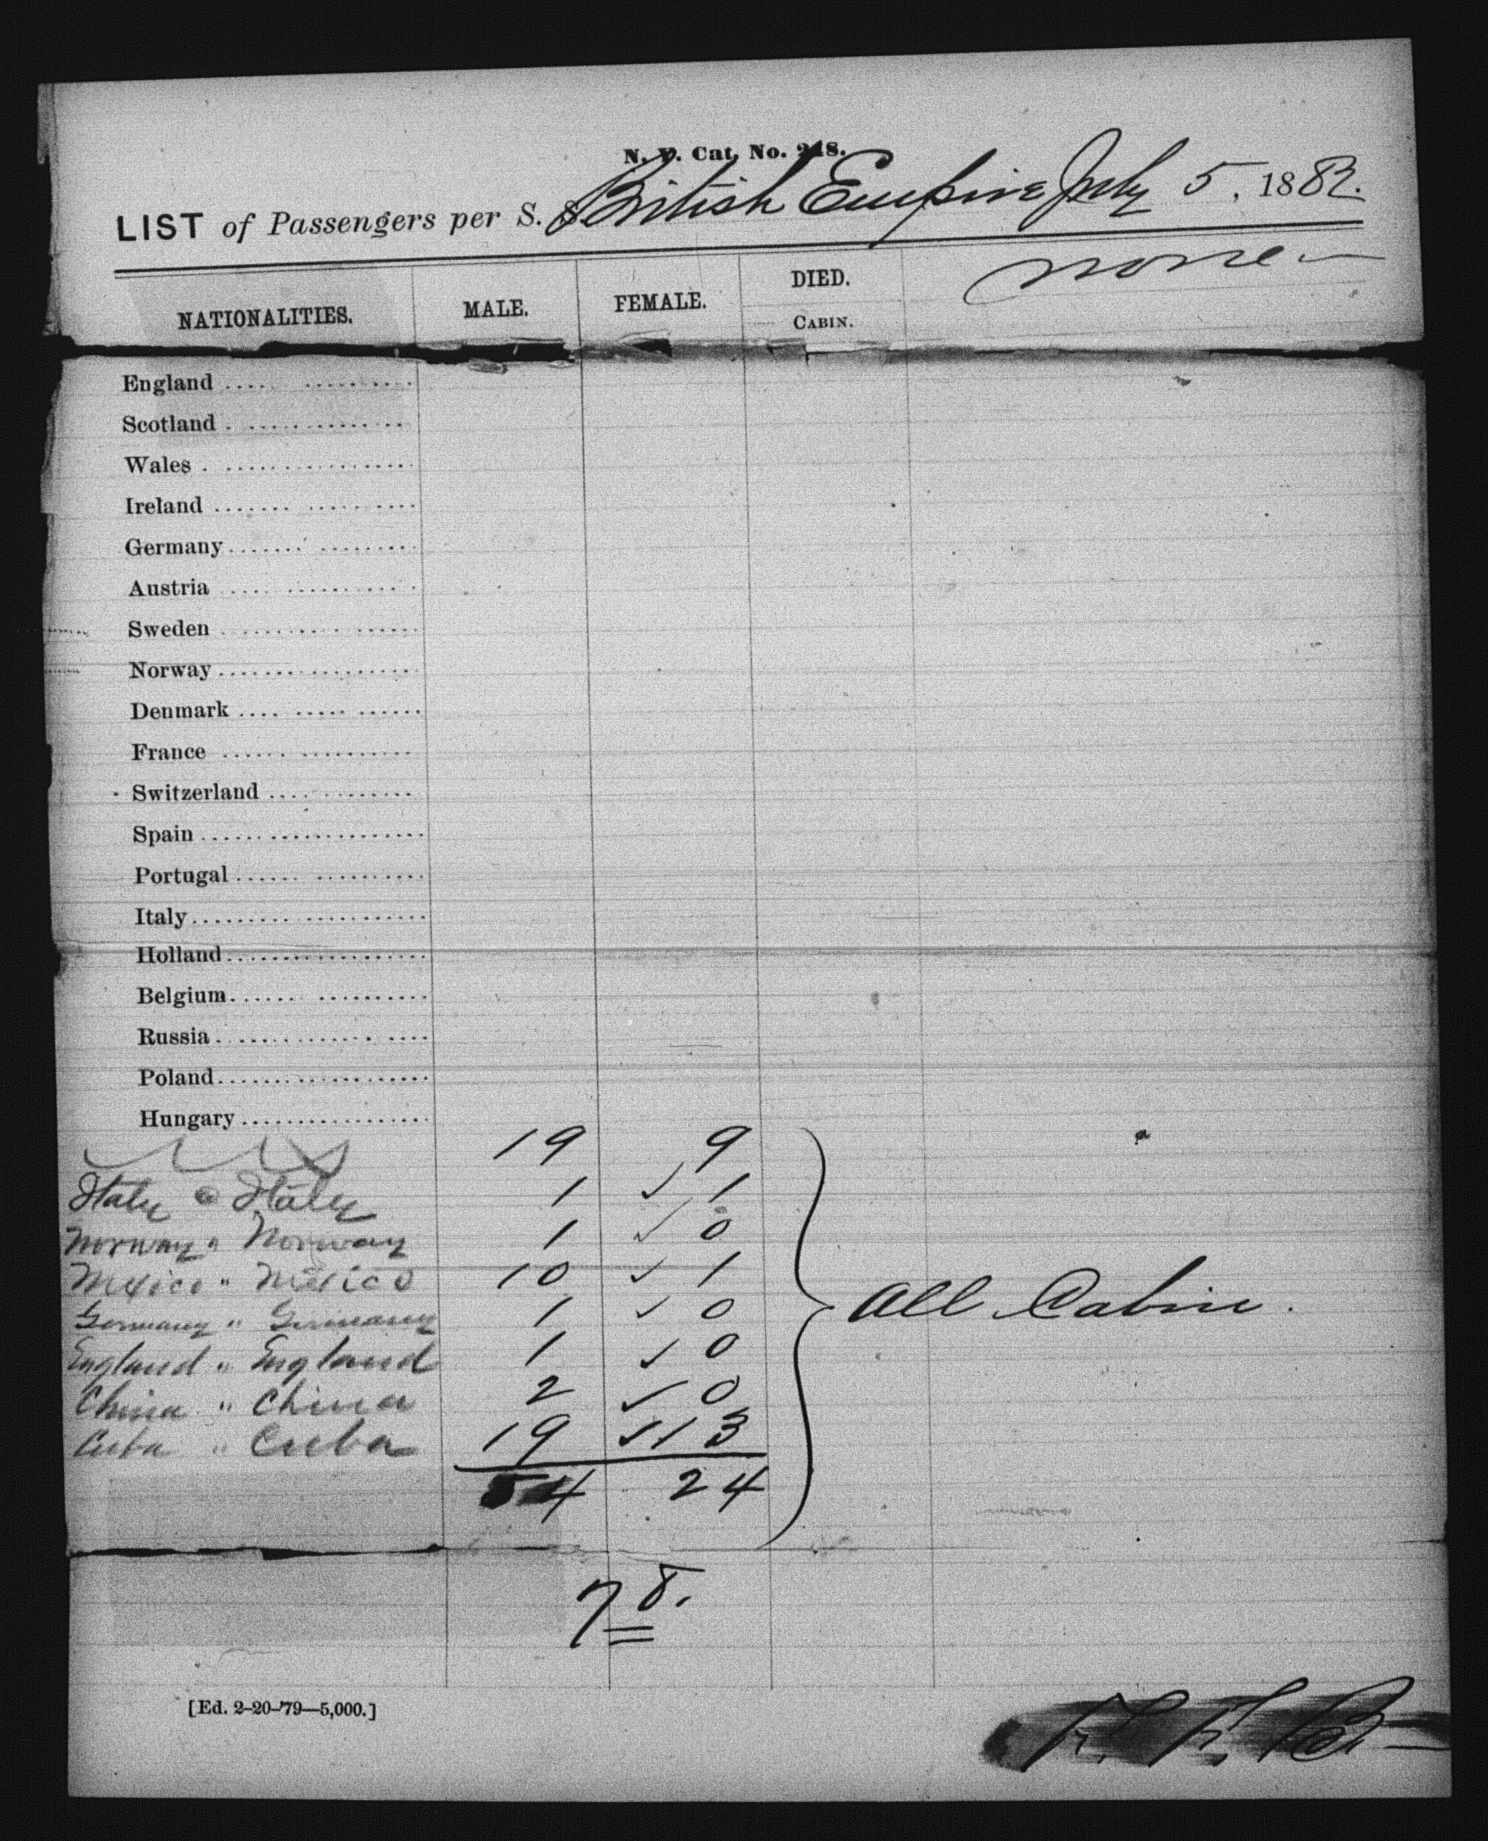 N. Y. Cat. No. 248.
LIST of Passengers per S. S. British Empire July 5, 1882.
none
NATIONALITIES. MALE. FEMALE. DIED.
CABIN.
England
Scotland
Wales
Ireland
Germany
Austria
Sweden
Norway
Denmark
France
Switzerland
Spain
Portugal
Italy
Holland
Belgium
Russia
Poland
Hungary
U S 19 9
Italy " Italy 1 ✓ 1
Norway " Norway 1 ✓ 0
Mexico " Mexico 10 ✓ 1
Germany " Germany 1 ✓ 0
England " England 1 ✓ 0
China " China 2 ✓ 0
Cuba " Cuba 19 ✓ 13
All Cabin.
54 24
78.
[Ed. 2-20-'79—5,000.]